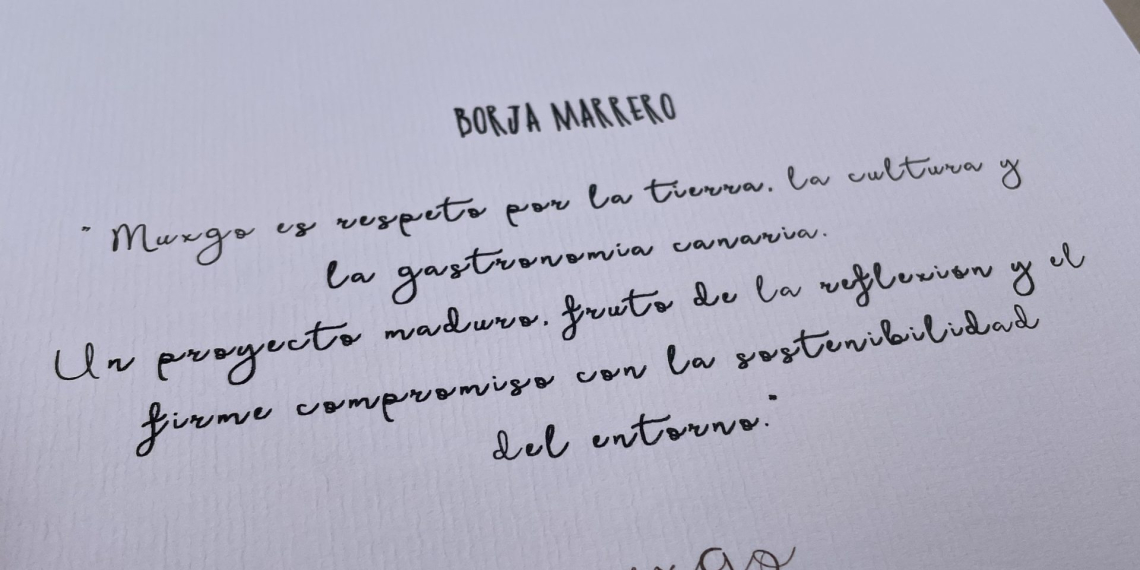 BORJA MARRERO
"Muxgo es respeto por la tierra, la cultura y
la gastronomia canaria.
Un proyecto maduro, fruto de la reflexion y el
firme compromiso con la sostenibilidad
del entorno."